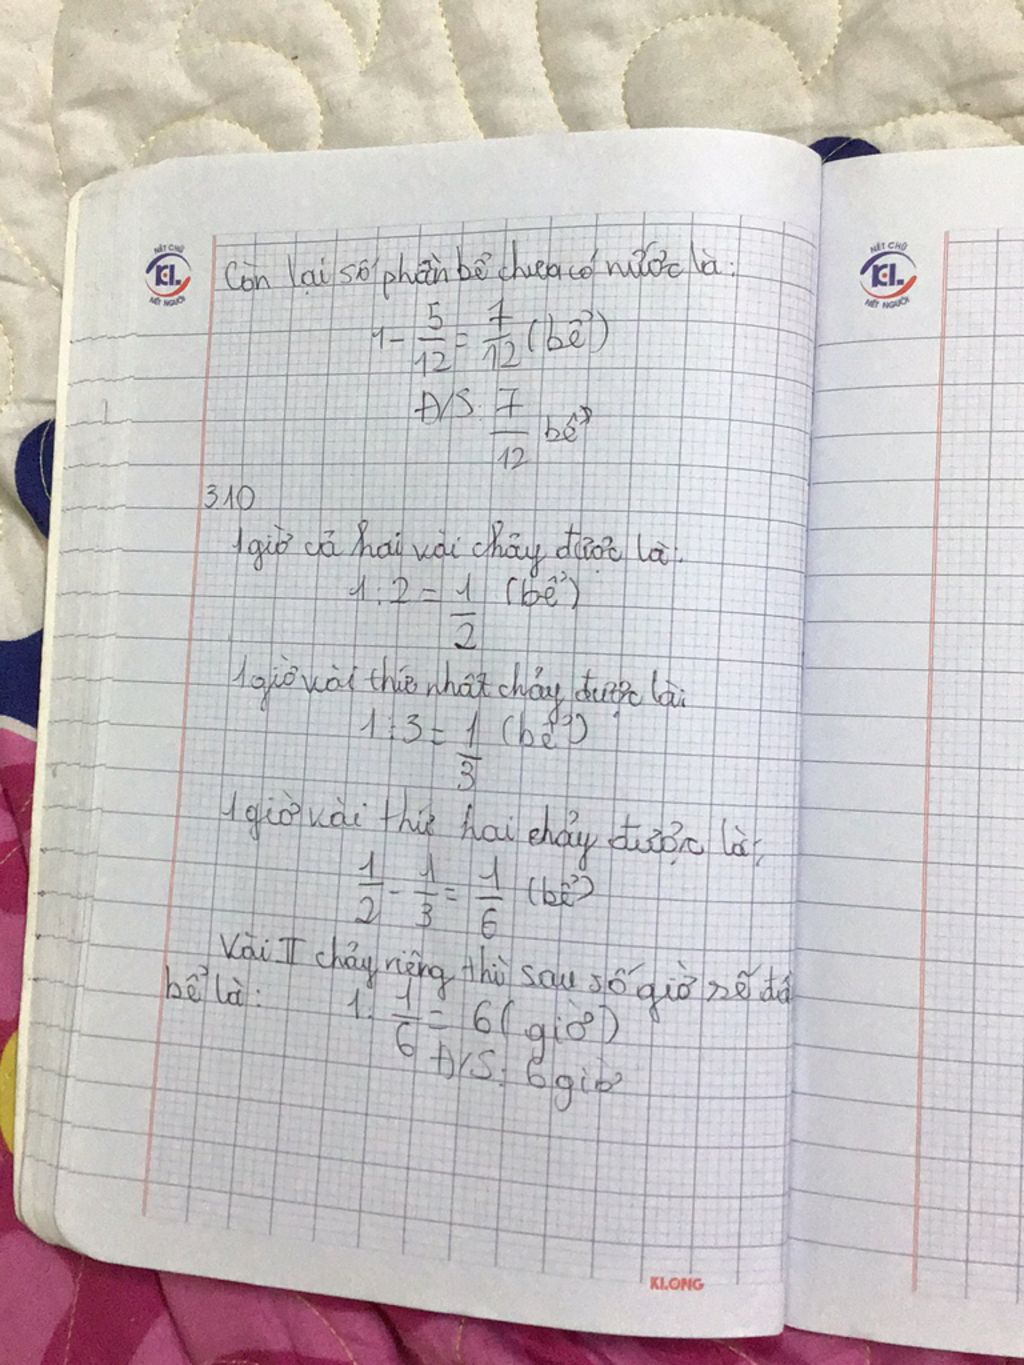 NÉT CHỮ
KL
NẾT NGƯỜI
NÉT CHỮ
KL
NẾT NGƯỜI
Còn lại số phần bể chưa có nước là:
1 - 5/12 = 7/12 (bể)
Đ/S: 7/12 bể
310
1 giờ cả hai vòi chảy được là:
1 : 2 = 1/2 (bể)
1 giờ vòi thứ nhất chảy được là:
1 : 3 = 1/3 (bể)
1 giờ vòi thứ hai chảy được là:
1/2 - 1/3 = 1/6 (bể)
Vòi II chảy riêng thì sau số giờ sẽ đầ
bể là: 1 : 1/6 = 6 (giờ)
Đ/S: 6 giờ
KLONG